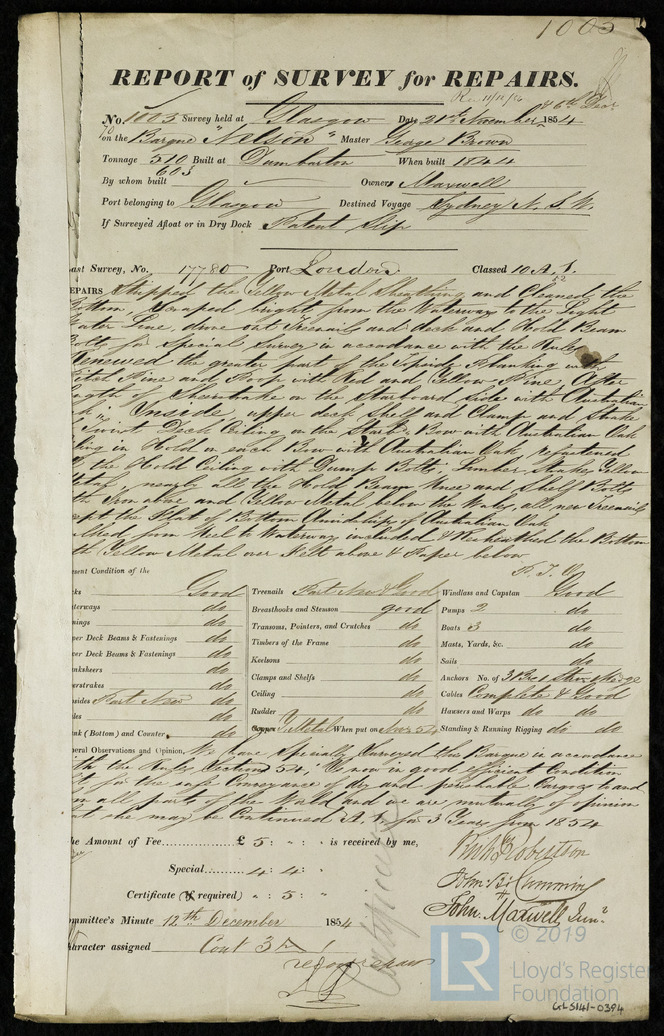 1003
REPORT of SURVEY for REPAIRS.
& 6th Decr
No. 1003 Survey held at Glasgow Date 21st November 1854
on the Barque "Nelson" Master George Brown
Tonnage 510 Built at Dumbarton When built 1844
603
By whom built Owners Maxwell
Port belonging to Glasgow Destined Voyage Sydney N. S. W.
If Surveyed Afloat or in Dry Dock Patent Slip
ast Survey, No. 17780 Port London Classed 10 A. 1.
EPAIRS Stripped the Yellow Metal Sheathing and Cleaned the
Bottom, Scraped bright from the Waterway to the Light
ater Line, drove out Treenails and deck and Hold Beam
Bolts for Special Survey in accordance with the Rules
Renewed the greater part of the Topside Planking with
itch Pine and Poop with Red and Yellow Pine, After
ngth of Sheerstrake on the Starboard side with Australian
k, Inside, upper deck Shelf and Clamp and Strake
Twixt Deck Ceiling on the Starbd Bow with Australian Oak
ling in Hold on each Bow with Australian Oak, refastened
the Hold Ceiling with Dump Bolts, Limber Strakes Yellow
etal, nearly all the Hold Beam Knee and Shelf Bolts
th Iron above and Yellow Metal below the Wales, all new Treenails
ept the Flat of Bottom Amidships of Australian Oak
lked from Keel to Waterway included & Resheathed the Bottom
th Yellow Metal over Felt above & Paper below
P. T. O.
esent Condition of the
cks Good Treenails Part New & Good Windlass and Capstan Good
terways do Breasthooks and Stemson good Pumps 2 do
mings do Transoms, Pointers, and Crutches do Boats 3 do
per Deck Beams & Fastenings do Timbers of the Frame do Masts, Yards, &c. do
wer Deck Beams & Fastenings do Keelsons do Sails do
anksheers do Clamps and Shelfs do Anchors No. of 3 Bes Stm & Kedge
eerstrakes do Ceiling do Cables Complete & Good
psides Part New do Rudder do Hawsers and Warps do do
les do Copper Y Metal When put on Novr 54 Standing & Running Rigging do do
nk (Bottom) and Counter do
eral Observations and Opinion, We have Specially Surveyed this Barque in accordance
ith the Rules Section 54, Is now in good efficient Condition
t for the safe Conveyance of dry and perishable Cargoes to and
m all parts of the World and we are mutually of opinion
at she may be Continued A. 1. for 3 Years from 1854
he Amount of Fee............ £ 5 : " : " is received by me,
Special........ 4 : 4 : "
Certificate (if required) " : 5 : "
Certificate
Robertson
John Cumming
John Maxwell Junr
ommittee's Minute 12th December 1854
haracter assigned Cont 3 A 1
© 2019
LR
Lloyd's Register
Foundation
GLS141-0394